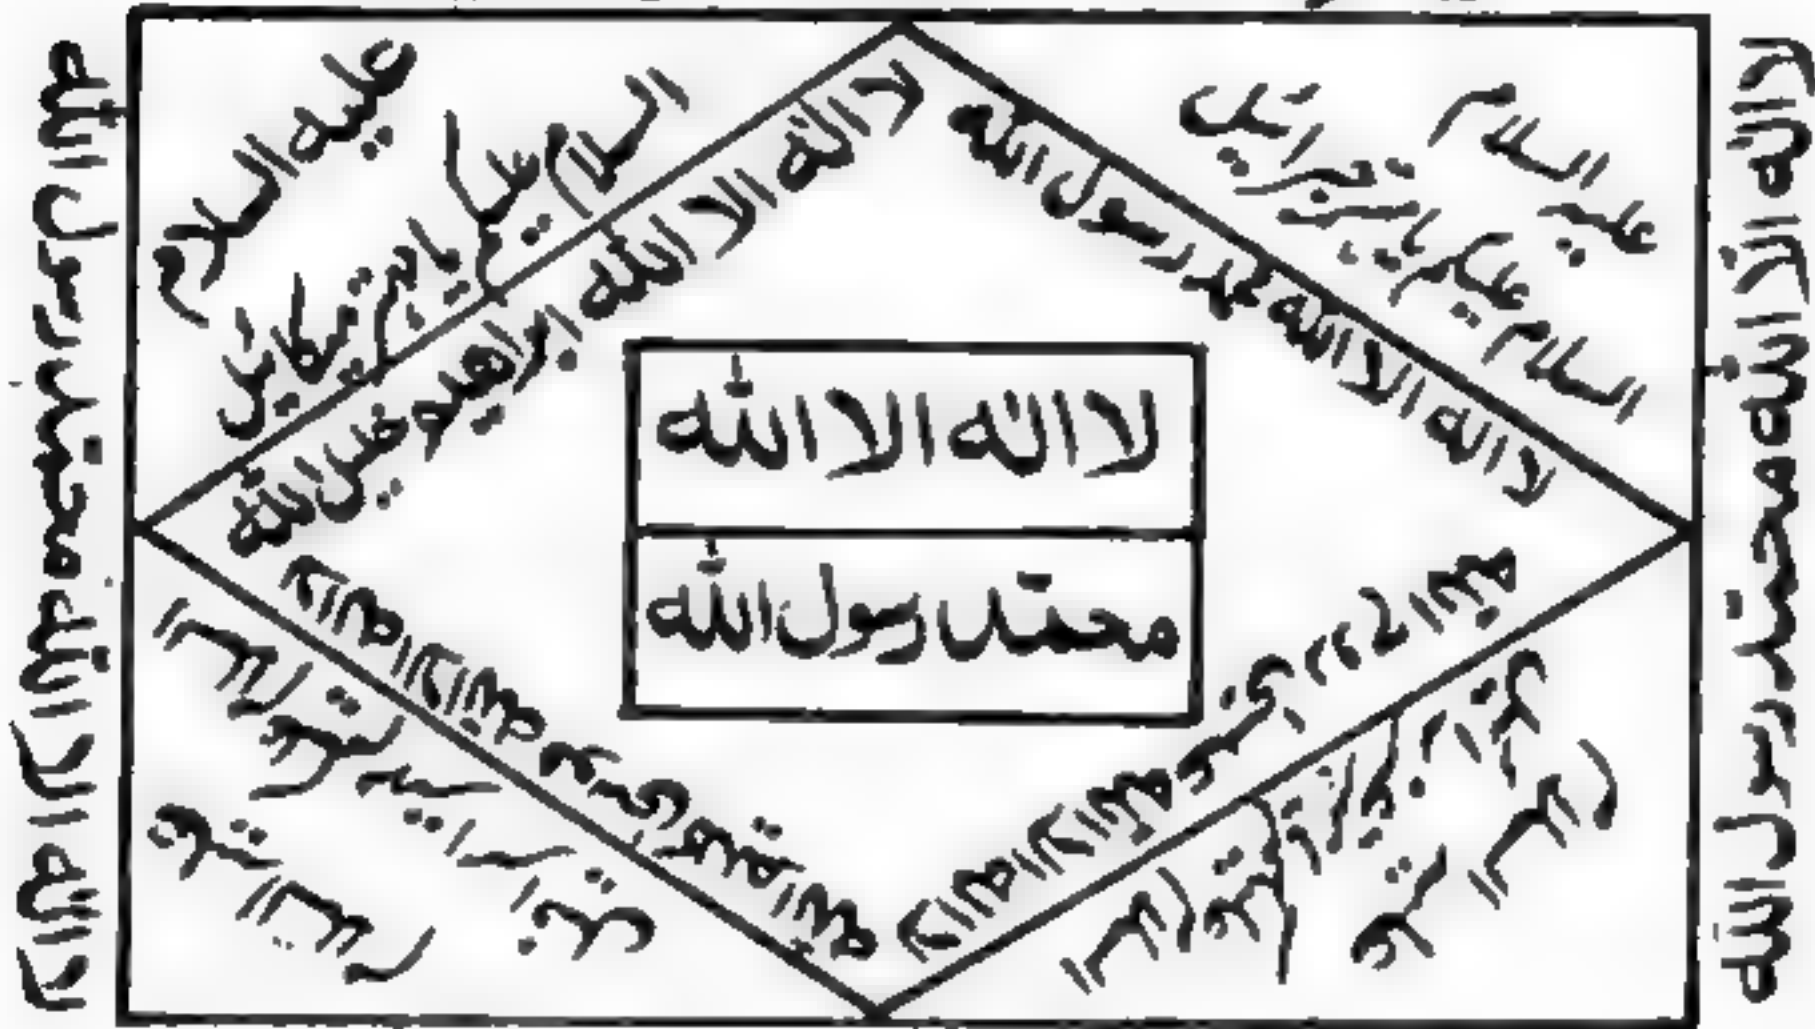 لا اله الا الله محمد رسول الله
عليه السلام
السلام عليكم يا مهتر جبرائيل
لا اله الا الله محمد رسول الله
عليه السلام
السلام عليكم يا مهتر ميكائيل
لا اله الا الله ابراهيم خليل الله
لا اله الا الله
محمد رسول الله
لا اله الا الله موسى الله
السلام عليكم اسرافيل
عليه السلام
لا اله الا الله عيسى روح الله
السلام عليكم يا مهتر
عليه السلام
لا اله الا الله محمد رسول الله